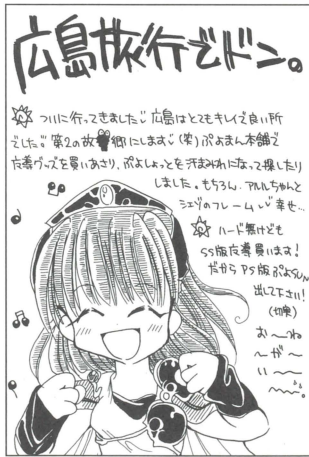 広島旅行でドン。
ついに行ってきました 広島はとてもキレイで良い所
でした。第2の故郷にします (笑) ぷよまん本舗で
魔導グッズを買いあさり、ぷよしょっとを汗まみれになって探したり
しました。もちろん、アルルちゃんと
シェゾのフレーム 幸せ…
ハード無けども
SS版魔導買います！
だからPS版ぷよSUN
出して下さい！
(切実)
お〜ね
〜が〜
い〜
〜。